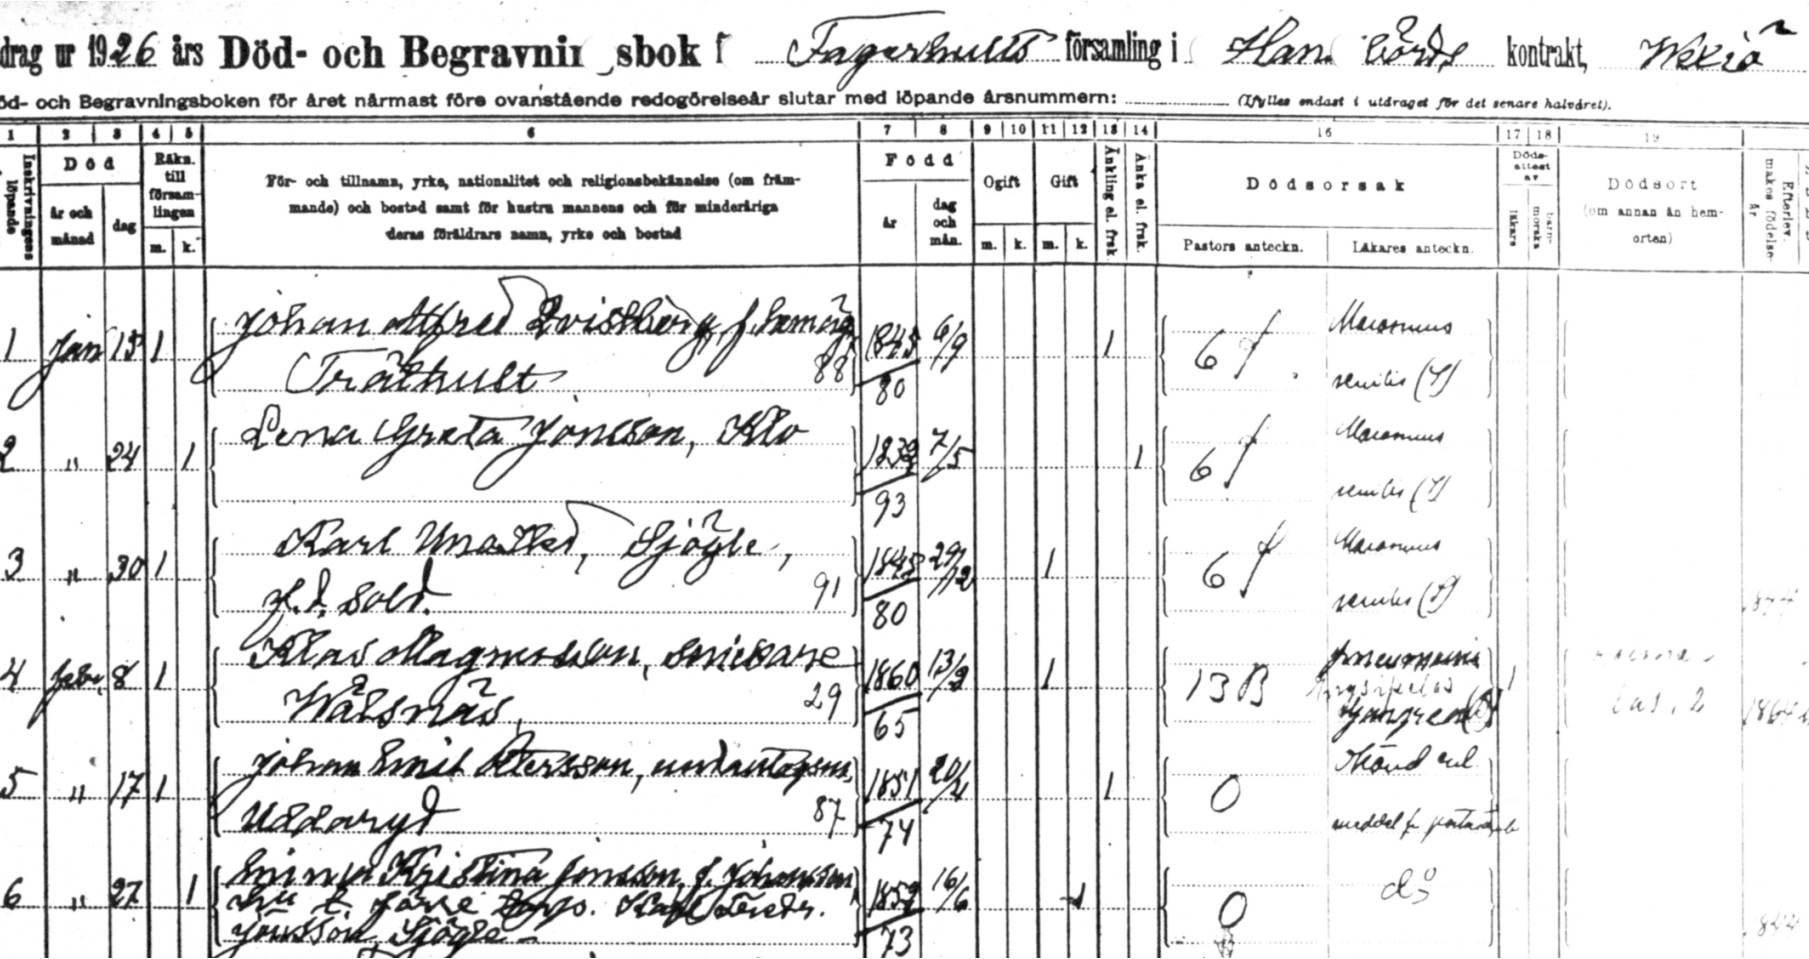 drag ur 1926 års Död- och Begravnin sbok f Fagerhults församling i Han börds kontrakt, Wexiö
öd- och Begravningsboken för året närmast före ovanstående redogörelseår slutar med löpande årsnummern: (Ifylles endast i utdraget för det senare halvåret).
1 2 3 4 5 6 7 8 9 10 11 12 13 14 16 17 18 19
Inskrivningens löpande
Död
år och månad
dag
Räkn. till försam- lingen
m. k.
För- och tillnamn, yrke, nationalitet och religionsbekännelse (om främ-
mande) och bostad samt för hustru mannens och för minderåriga
deras föräldrars namn, yrke och bostad
Född
år
dag och mån.
Ogift
m. k.
Gift
m. k.
Änkling el. frsk.
Änka el. frsk.
Dödsorsak
Pastors anteckn.
Läkares anteckn.
Döds- attest av
läkare
barn- morska
Dödsort
(om annan än hem-
orten)
Efterlev. makes födelse- år
1 Jan 15 1 Johan Alfred Qvistberg, f. hemäg 1845 6/9 1 6 Marasmus
Trälhult 88 80 senilis
2 " 24 1 Lena Greta Jonsson, Klo 1832 7/5 1 6 Marasmus
93 senilis
3 " 30 1 Karl Sjögle, 1845 29/12 1 6 Marasmus
f. d. sold. 91 80 senilis
4 febr. 8 1 Klas Magnusson, snickare 1860 13/2 1 13 B pneumonia
Erysipelas
29 65 gangren
5 " 17 1 Johan Emil Petersson, undantagsm, 1851 20/4 1 0
Uddaryd 87 74
6 " 27 1 Emma Kristina Jonsson, f. Johansson 1852 16/6 1 0 d:o
Jonsson, Sjögle 73